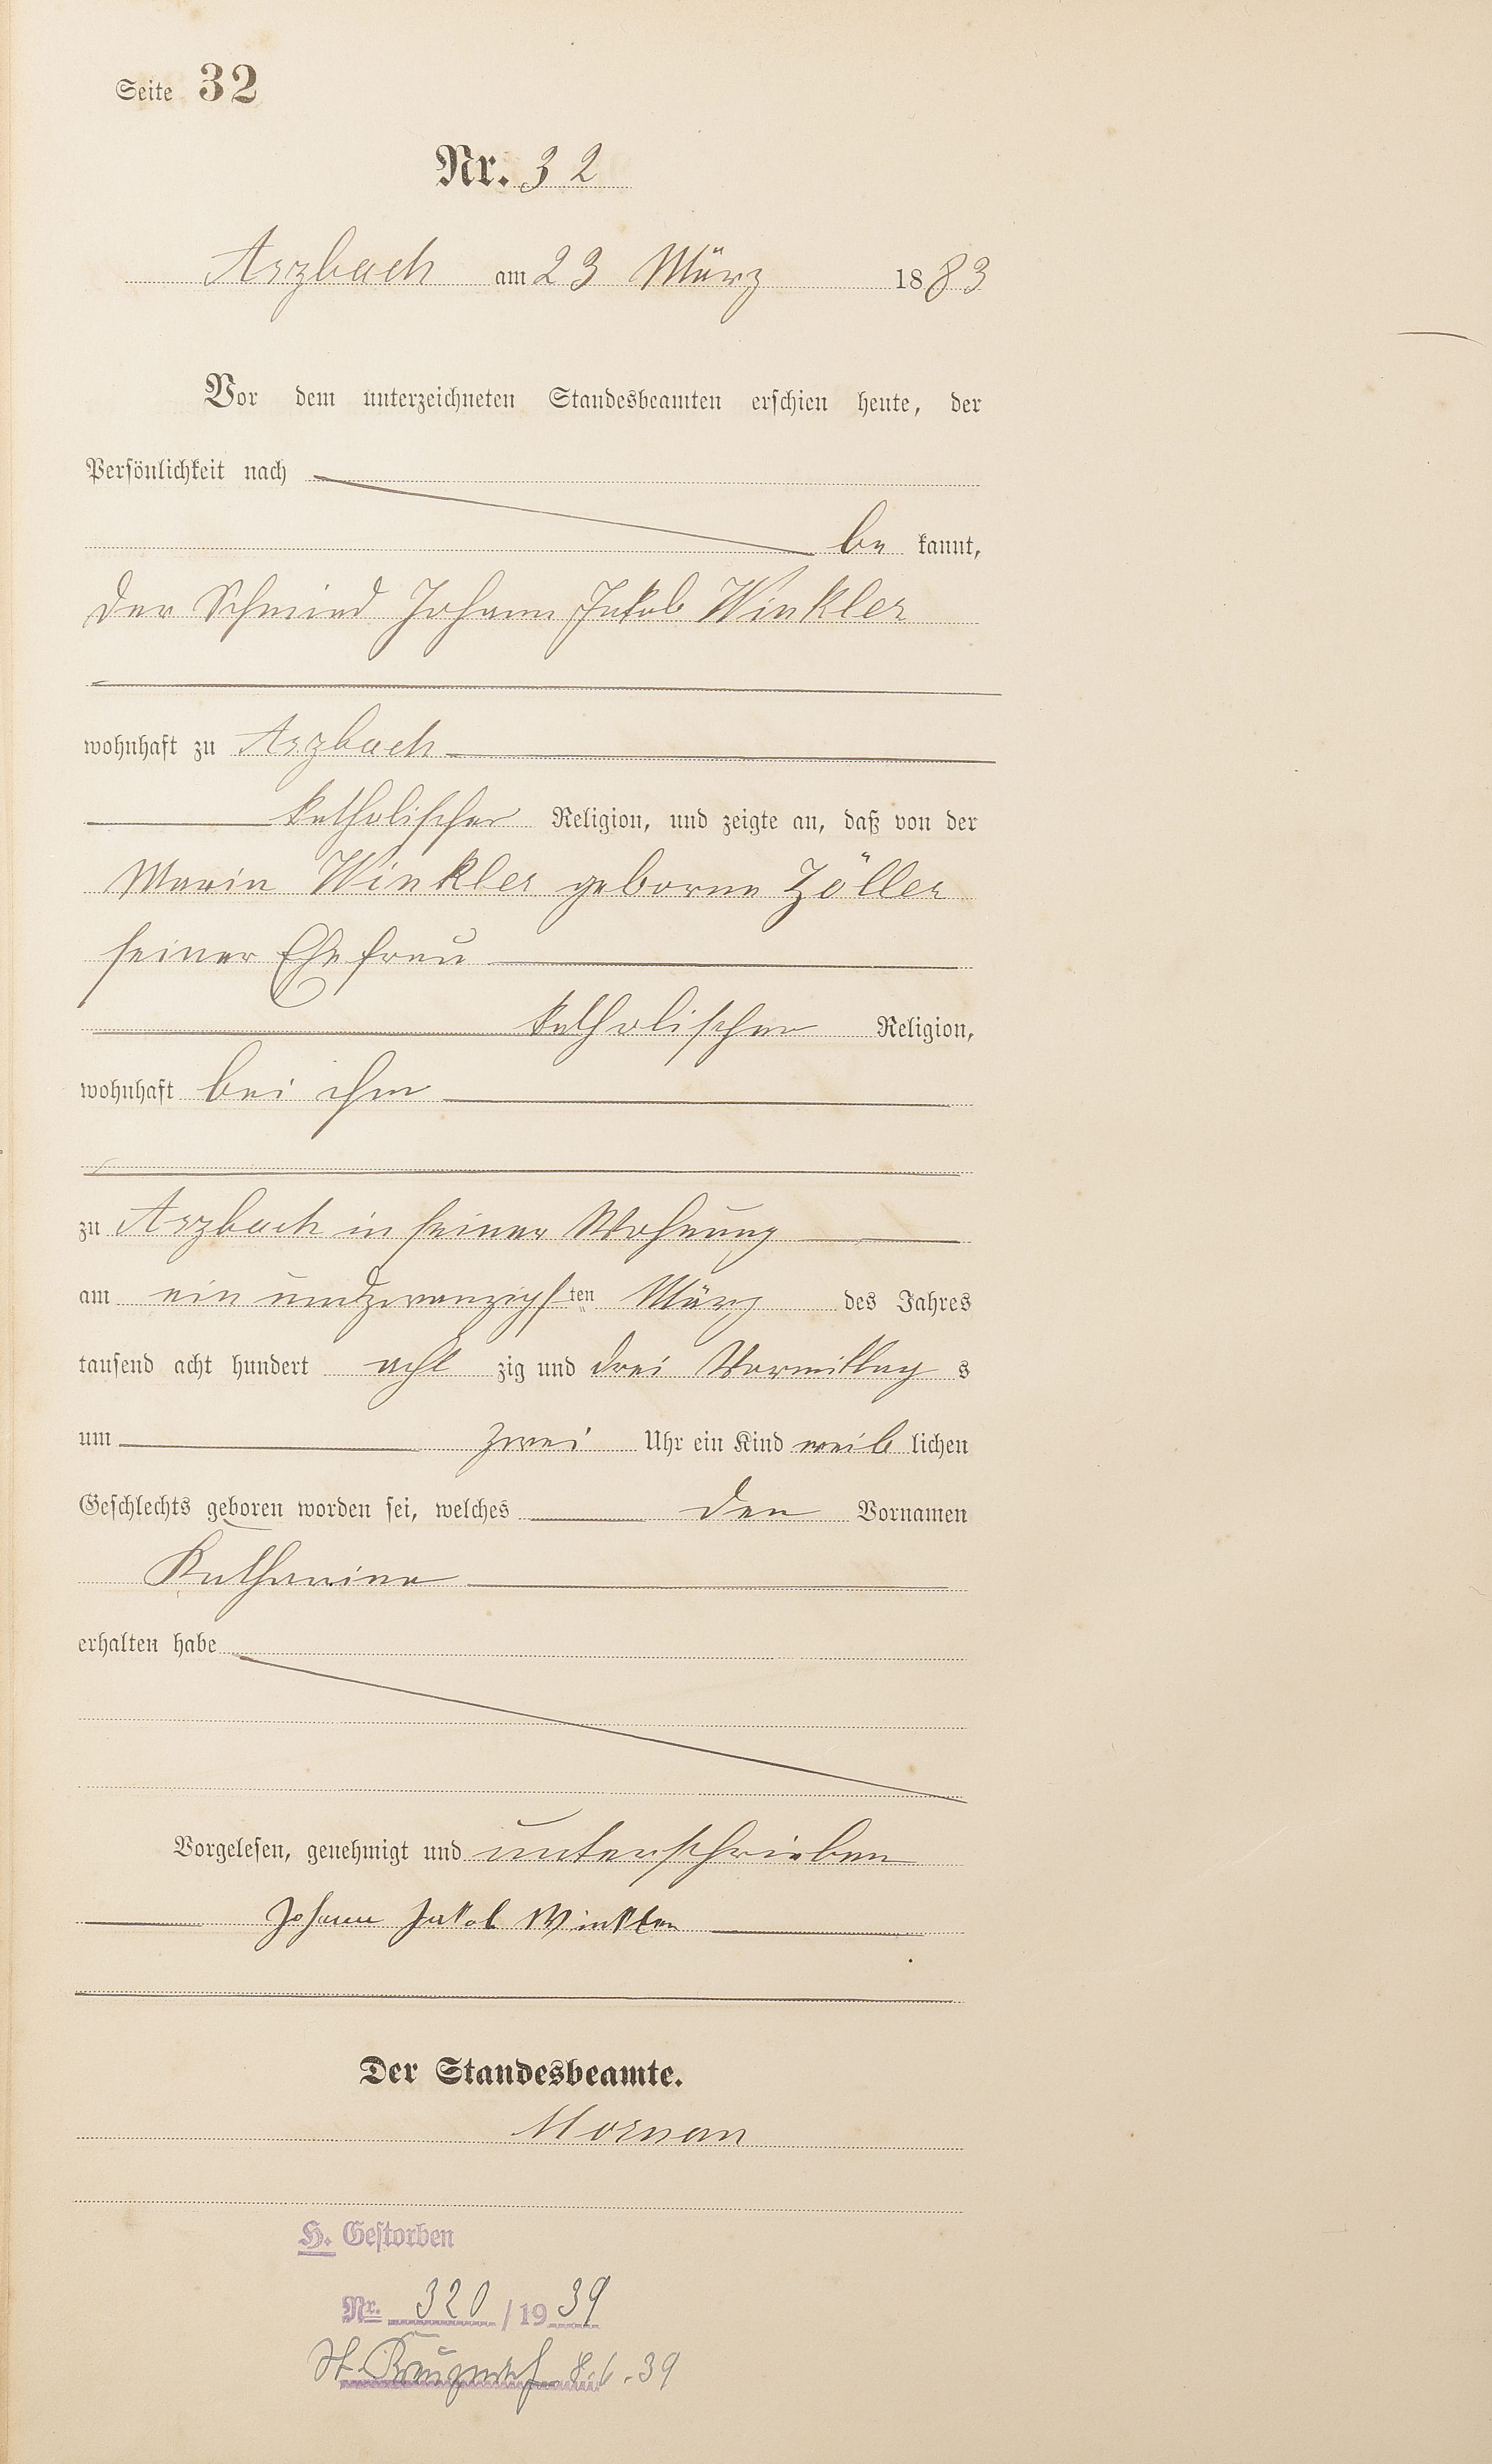 Seite 32
Nr. 32
Arzbach am 23 März 1883
Vor dem unterzeichneten Standesbeamten erschien heute, der
Persönlichkeit nach
be kannt,
der Schmied Johann Jakob Winkler
wohnhaft zu Arzbach
katholischer Religion, und zeigte an, daß von der
Maria Winkler geborne Zöller
seiner Ehefrau
katholischer Religion,
wohnhaft bei ihm
zu Arzbach in seiner Wohnung
am ein undzwanzigsten März des Jahres
tausend acht hundert acht zig und drei Vormittag s
um zwei Uhr ein Kind weib lichen
Geschlechts geboren worden sei, welches den Vornamen
Katharina
erhalten habe
Vorgelesen, genehmigt und unterschrieben
Johann Jakob Winkler
Der Standesbeamte.
Mornan
H. Gestorben
Nr. 320/1939
St.